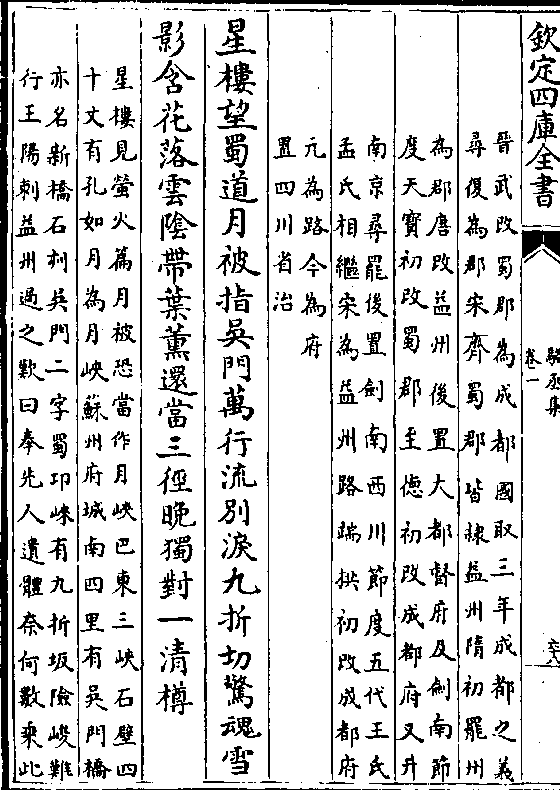 欽定四庫全書
駱丞集
卷一
晉武改蜀郡為成都國取三年成都之義
尋復為郡宋齊蜀郡皆隷益州隋初罷州
為郡唐改益州後置大都督府及劍南節
度天寶初改蜀郡至德初改成都府又升
南京尋罷後置劍南西川節度五代王氏
孟氏相繼宋為益州路端拱初改成都府
元為路今為府
置四川省治
星樓望蜀道月被指吳門萬行流別淚九折切驚魂雪
影含花落雲陰帶葉薰還當三徑晚獨對一清樽
星樓見螢火篇月被恐當作月峽巴東三峽石壁四
十丈有孔如月為月峽蘇州府城南四里有吳門橋
亦名新橋石刻吳門二字蜀卭崍有九折坂險峻難
行王陽刺益州過之歎曰奉先人遺體奈何數乘此